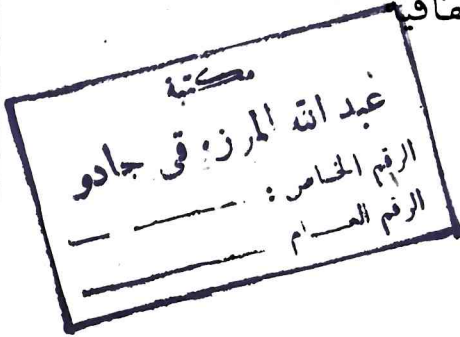 مكتبة
عبد الله المرزوقي جادو
الرقم الخاص :
الرقم العام